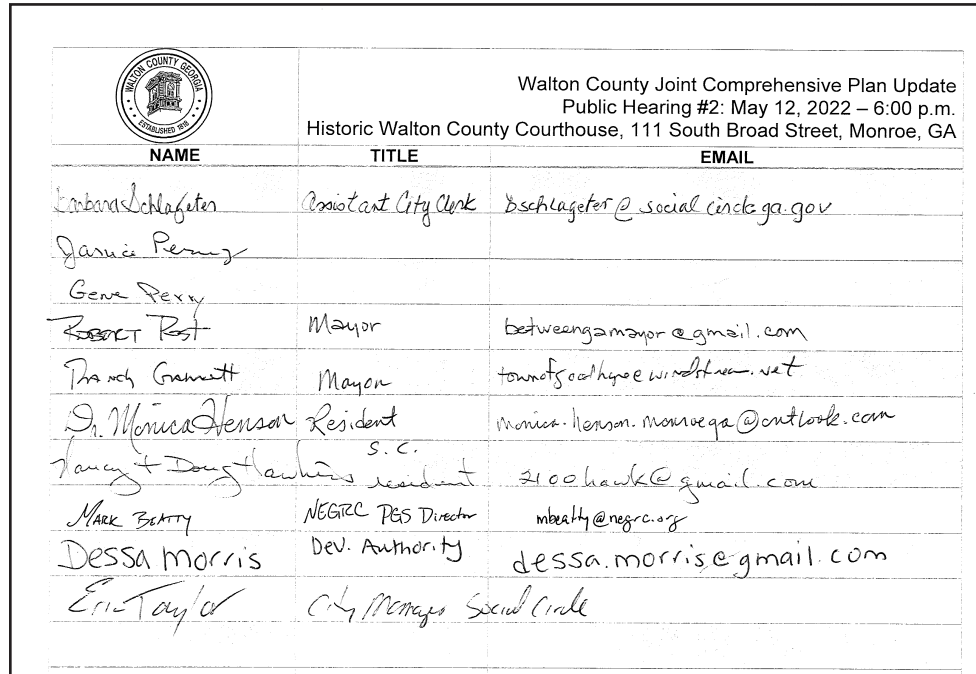 WALTON COUNTY GEORGIA
ESTABLISHED 1818
Walton County Joint Comprehensive Plan Update
Public Hearing #2: May 12, 2022 – 6:00 p.m.
Historic Walton County Courthouse, 111 South Broad Street, Monroe, GA
NAME TITLE EMAIL
Barbara Schlageter Assistant City Clerk bschlageter@socialcirclega.gov
Janice Perry
Gene Perry
ROBERT Post Mayor betweengamayor@gmail.com
Mayor
Dr. Monica Henson Resident monica.henson.monroega@outlook.com
Nancy + Doug Hawkins S.C. resident 2100hawk@gmail.com
MARK BEATTY NEGRC PGS Director mbeatty@negrc.org
Dessa Morris Dev. Authority dessa.morris@gmail.com
Eric Taylor City Manager Social Circle